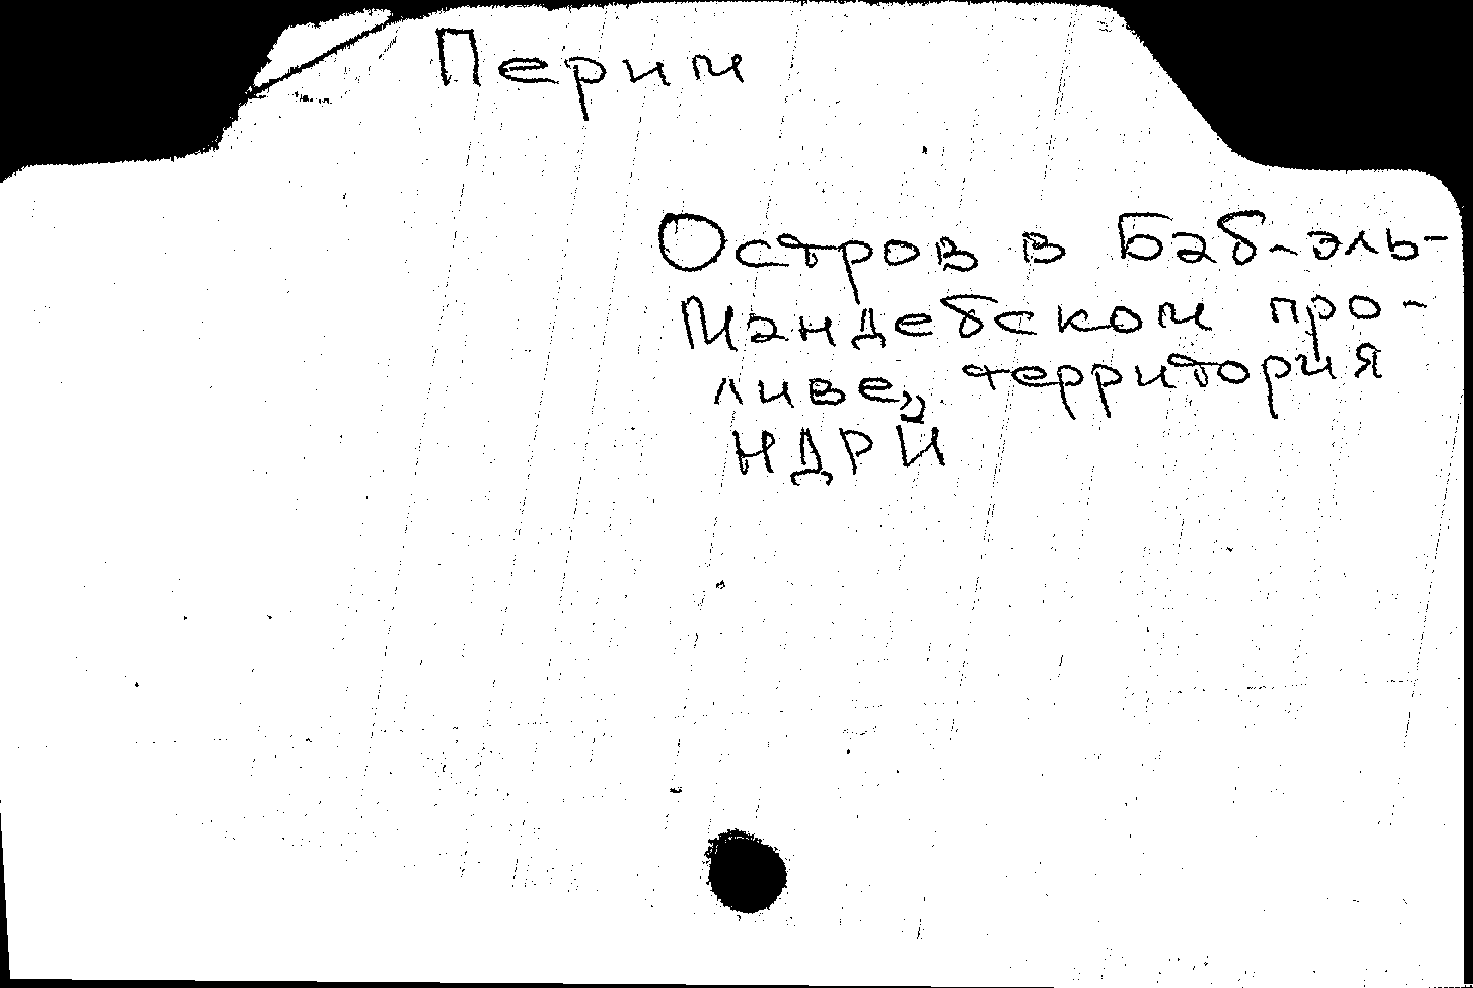 Перим
Остров в Баб-эль-
Мандебском про-
ливе, территория
НДРЙ